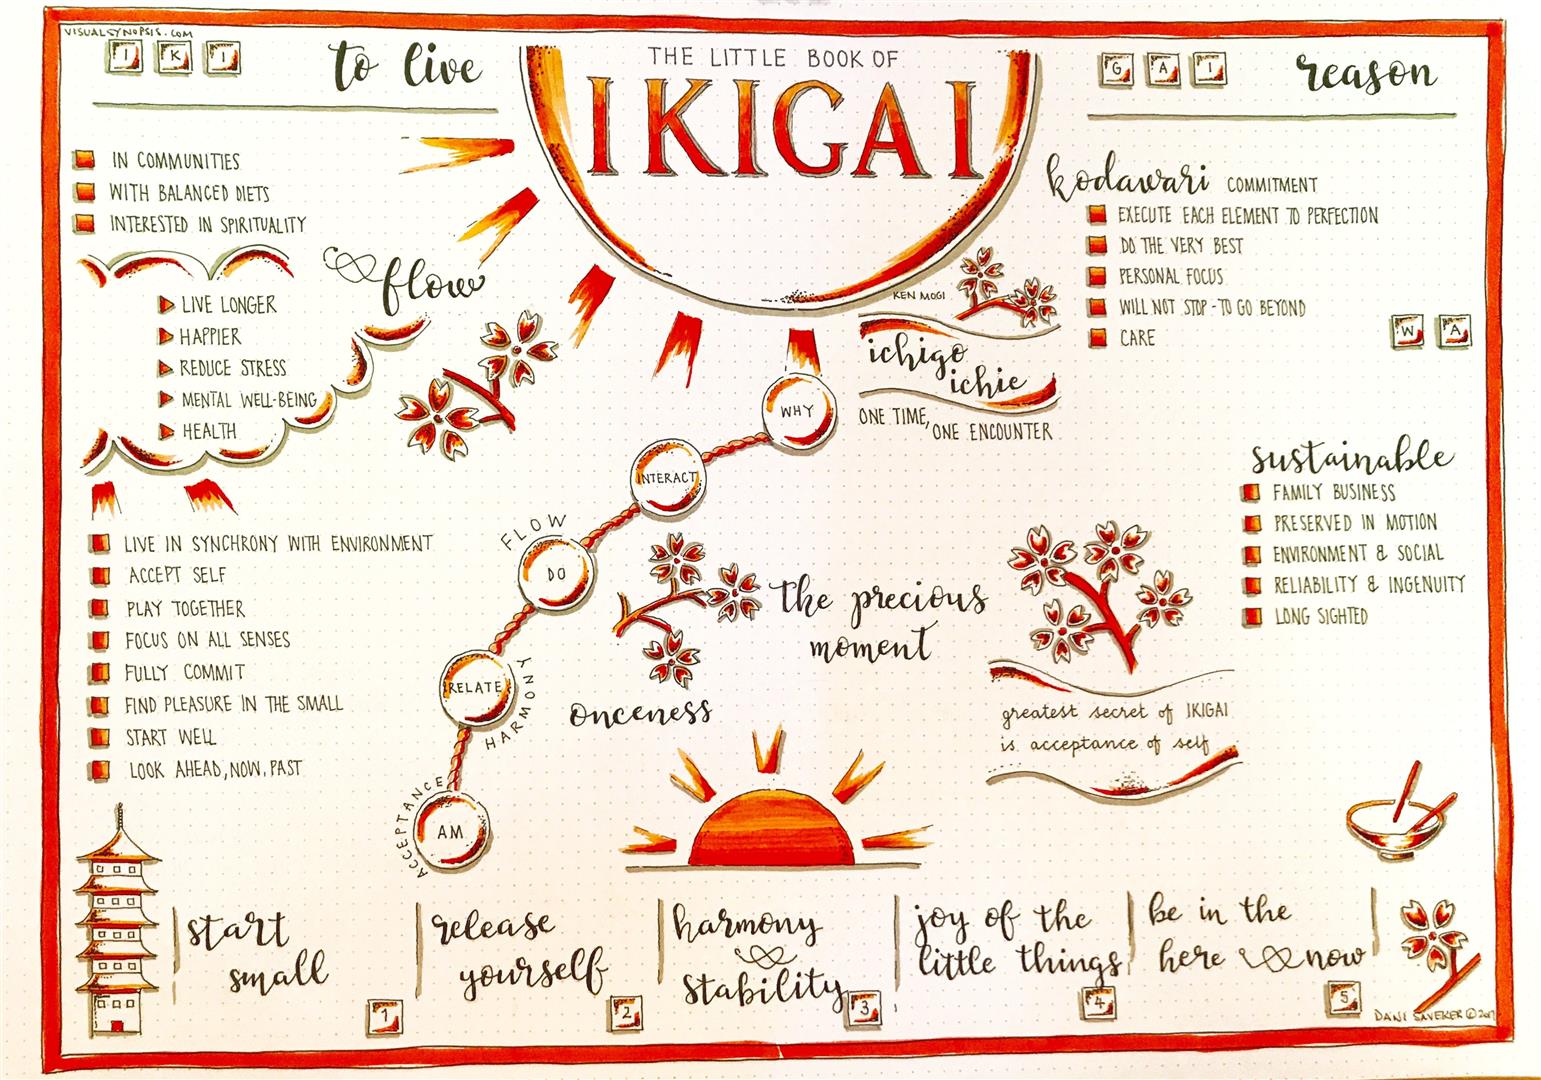 VISUALSYNOPSIS.COM
I K I
to live
THE LITTLE BOOK OF
IKIGAI
KEN MOGI
G A I
reason
IN COMMUNITIES
WITH BALANCED DIETS
INTERESTED IN SPIRITUALITY
flow
LIVE LONGER
HAPPIER
REDUCE STRESS
MENTAL WELL-BEING
HEALTH
LIVE IN SYNCHRONY WITH ENVIRONMENT
ACCEPT SELF
PLAY TOGETHER
FOCUS ON ALL SENSES
FULLY COMMIT
FIND PLEASURE IN THE SMALL
START WELL
LOOK AHEAD, NOW, PAST
WHY
INTERACT
FLOW
DO
RELATE
HARMONY
ACCEPTANCE
AM
ichigo
ichie
ONE TIME,
ONE ENCOUNTER
the precious
moment
onceness
kodawari COMMITMENT
EXECUTE EACH ELEMENT TO PERFECTION
DO THE VERY BEST
PERSONAL FOCUS
WILL NOT STOP - TO GO BEYOND
CARE
W A
sustainable
FAMILY BUSINESS
PRESERVED IN MOTION
ENVIRONMENT & SOCIAL
RELIABILITY & INGENUITY
LONG SIGHTED
greatest secret of IKIGAI
is acceptance of self
start
small
1
release
yourself
2
harmony
&
stability
3
joy of the
little things
4
be in the
here & now
5
DANI SAVEKER © 2017